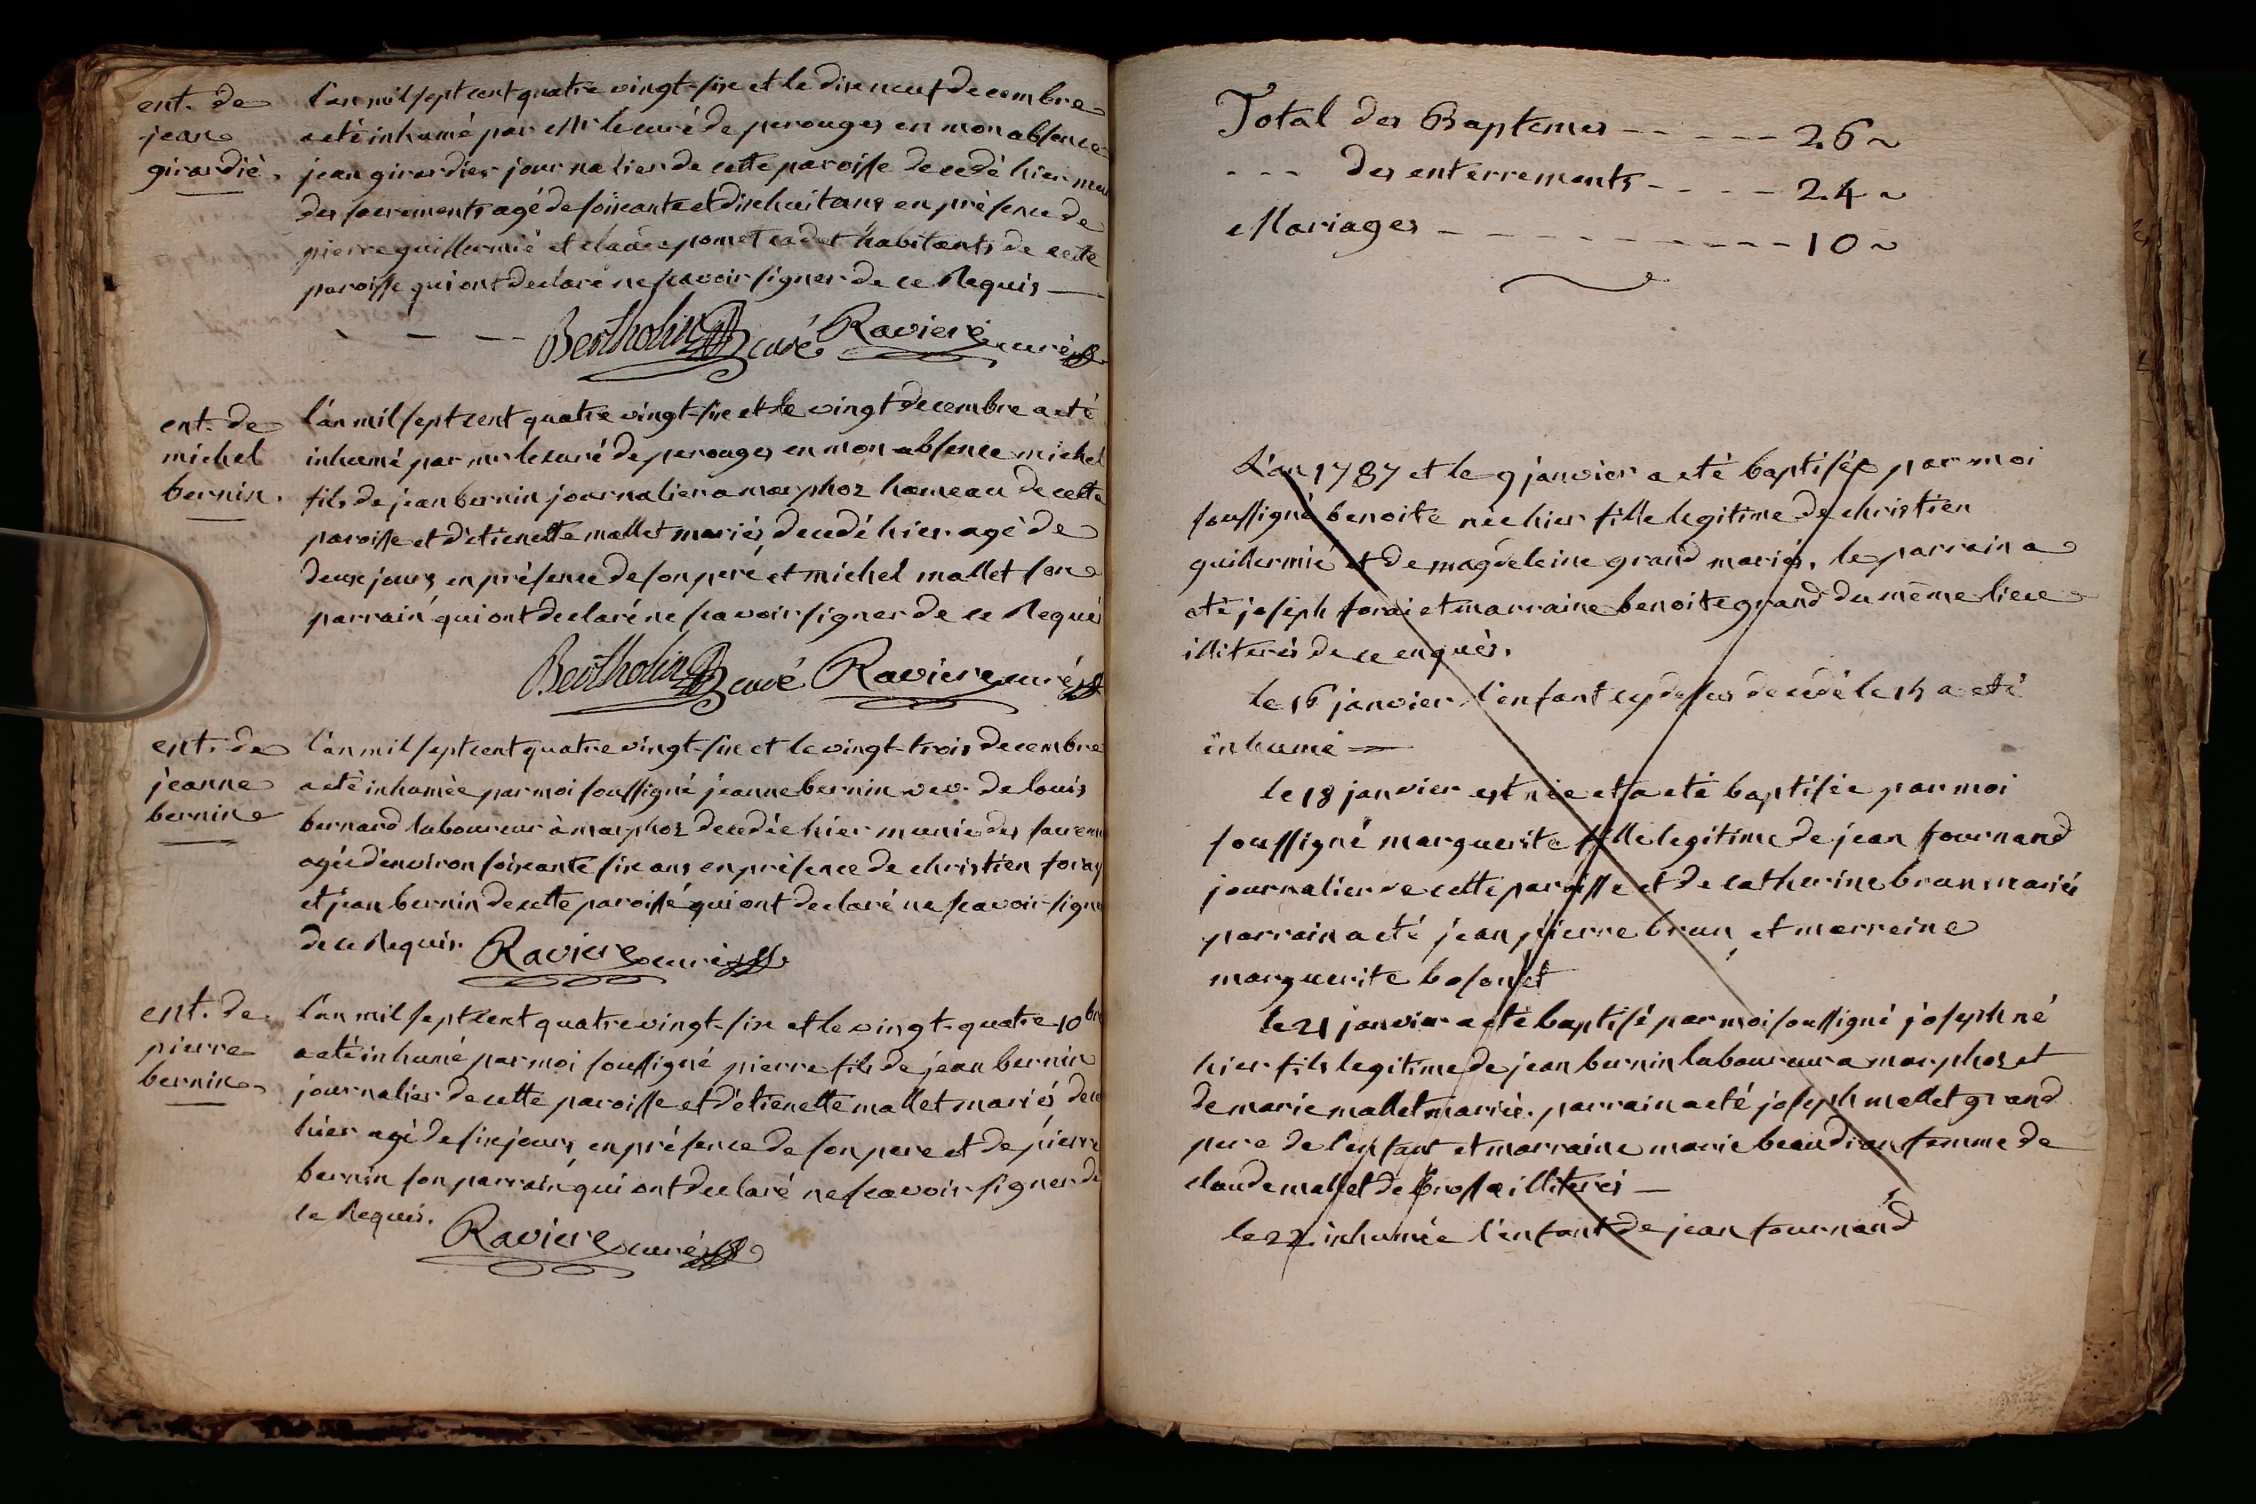 ent. de
jean
girardié.
l'an mil sept cent quatre vingt-six et le dix neuf decembre
a eté inhumé par Mr le curé de perouges en mon absence
jean girardier journalier de cette paroisse decedé hier muni
des sacrements agé de soixante et dixhuit ans en présence de
pierre guillermié et claude pomet cadet habitants de cette
paroisse qui ont declaré ne scavoir signer de ce Requis
Bertholin curé Raviere curé
ent. de
michel
bernin.
l'an mil sept cent quatre vingt-six et le vingt decembre a eté
inhumé par mr le curé de perouges en mon absence michel
fils de jean bernin journalier a marphoz hameau de cette
paroisse et d'etienette mallet mariés, decedé hier agé de
deux jours, en présence de son pere, et michel mallet son
parrain qui ont declaré ne scavoir signer de ce Requis
Bertholin curé Raviere curé
ent. de
jeanne
bernin
l'an mil sept cent quatre vingt-six et le vingt-trois decembre
a eté inhumée par moi soussigné jeanne bernin vev. de louis
bernard laboureur à marphoz decedée hier munie des sacrem
agée d'environ soixante six ans en présence de christien foray
et jean bernin de cette paroisse qui ont declaré ne scavoir signer
de ce Requis. Raviere curé
ent. de
pierre
bernin.
l'an mil sept cent quatre vingt-six et le vingt-quatre 10bre
a eté inhumé par moi soussigné pierre fils de jean bernin
journalier de cette paroisse et d'etienette mallet mariés, dece
hier agé de six jours, en présence de son pere et de pierre
bernin son parrain qui ont declaré ne scavoir signer de
ce Requis.
Raviere curé
Total des Baptemes - - - - - 26
- - - des enterrements - - - - 24
Mariages - - - - - - - - - - 10
L'an 1787 et le 9 janvier a eté baptisée par moi
soussigné benoite née hier fille legitime de christien
guillermié et de magdeleine grand mariés, le parrain a
eté joseph forai et marraine benoite grand du même lieu
illiterés de ce enquis.
le 16 janvier l'enfant cy dessus decedé le 15 a eté
inhumé
le 18 janvier est née et a eté baptisée par moi
soussigné marguerite fille legitime de jean fournand
journalier de cette paroisse et de catherine brun mariés
parrain a eté jean pierre brun, et marreine
marguerite bosonet
le 21 janvier a eté baptisé par moi soussigné joseph né
hier fils legitime de jean bernin laboureur a marphoz et
de marie mallet mariés. parrain a eté joseph mallet grand
pere de l'enfant et marraine marie beaudran femme de
claude mallet de brossa illiterés
le 22 inhumée l'enfant de jean fournand